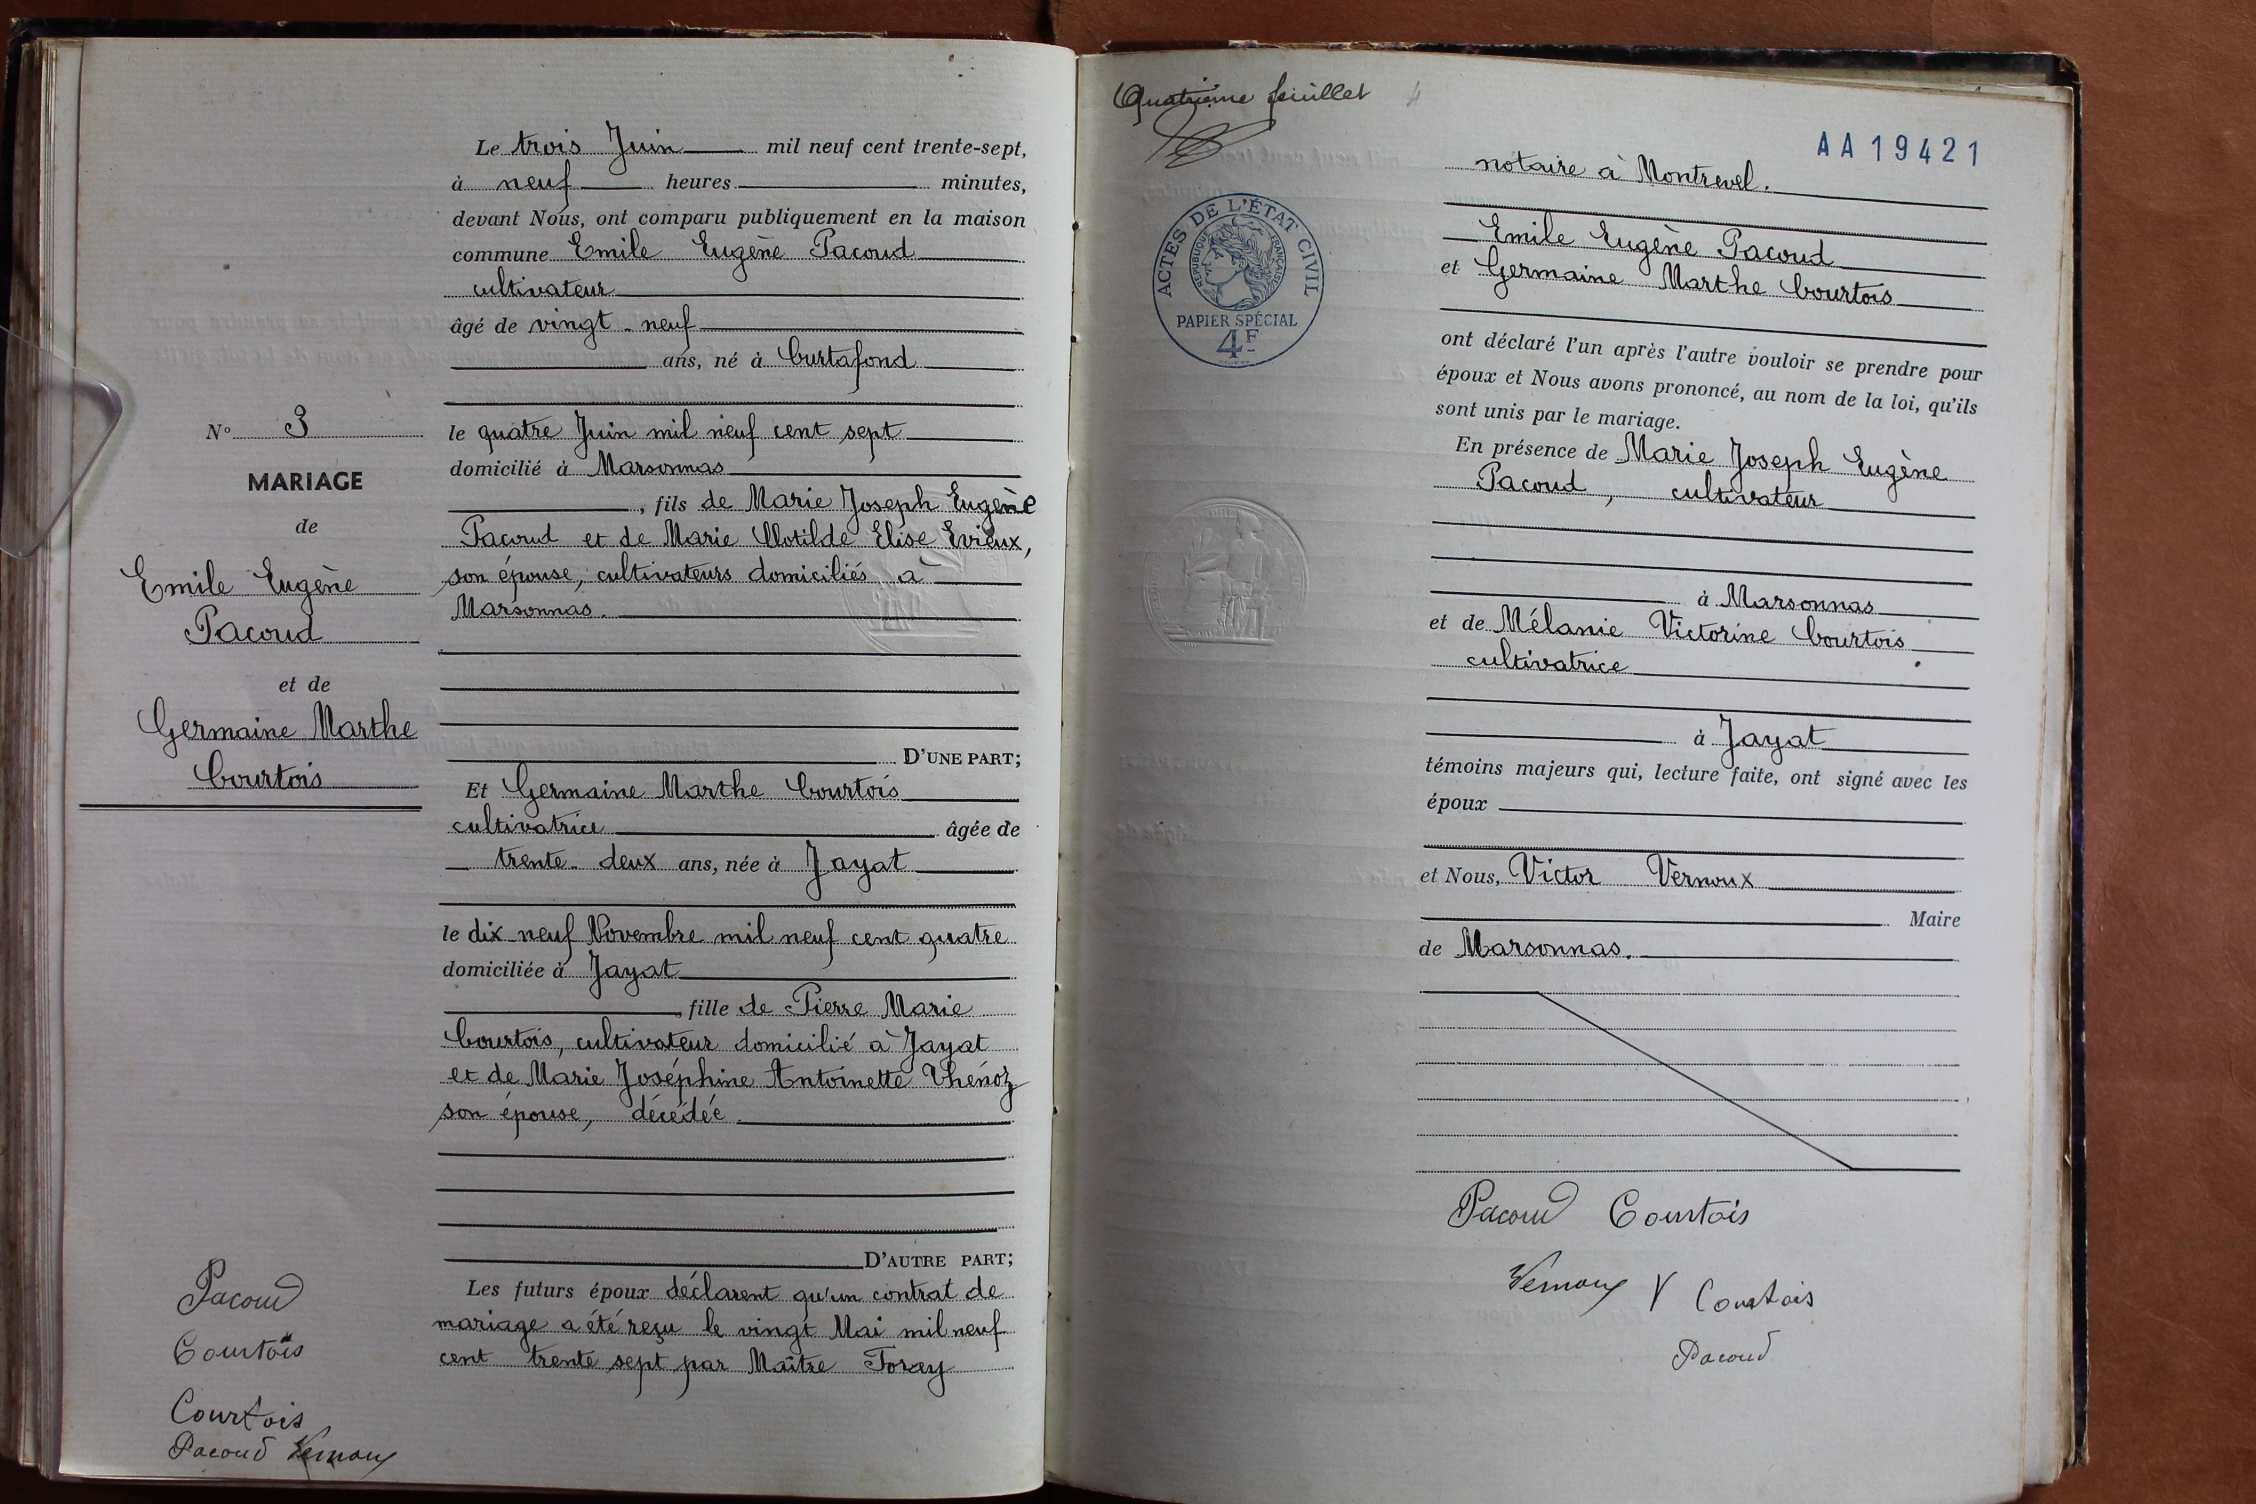 Le trois Juin mil neuf cent trente-sept,
à neuf heures minutes,
devant Nous, ont comparu publiquement en la maison
commune Emile Eugène Pacoud
cultivateur
âgé de vingt-neuf
ans, né à Curtafond
N° 3
MARIAGE
de
Emile Eugène
Pacoud
et de
Germaine Marthe
Courtois
le quatre Juin mil neuf cent sept
domicilié à Marsonnas
, fils de Marie Joseph Eugène
Pacoud et de Marie Clotilde Elise Evieux,
son épouse, cultivateurs domiciliés à
Marsonnas.
D'UNE PART;
Et Germaine Marthe Courtois
cultivatrice âgée de
trente-deux ans, née à Jayat
le dix-neuf Novembre mil neuf cent quatre
domiciliée à Jayat
, fille de Pierre Marie
Courtois, cultivateur domicilié à Jayat
et de Marie Joséphine Antoinette Thénoz
son épouse, décédée
D'AUTRE PART;
Les futurs époux déclarent qu'un contrat de
mariage a été reçu le vingt Mai mil neuf
cent trente sept par Maître Foray
Pacoud
Courtois
Courtois
Pacoud Vernoux
Quatrième feuillet 4
AA19421
ACTES DE L'ÉTAT CIVIL
REPUBLIQUE FRANÇAISE
PAPIER SPÉCIAL
4F
notaire à Montrevel.
Emile Eugène Pacoud
et Germaine Marthe Courtois
ont déclaré l'un après l'autre vouloir se prendre pour
époux et Nous avons prononcé, au nom de la loi, qu'ils
sont unis par le mariage.
En présence de Marie Joseph Eugène
Pacoud, cultivateur
à Marsonnas
et de Mélanie Victorine Courtois
cultivatrice
à Jayat
témoins majeurs qui, lecture faite, ont signé avec les
époux
et Nous, Victor Vernoux
Maire
de Marsonnas.
Pacoud Courtois
Vernoux V Courtois
Pacoud